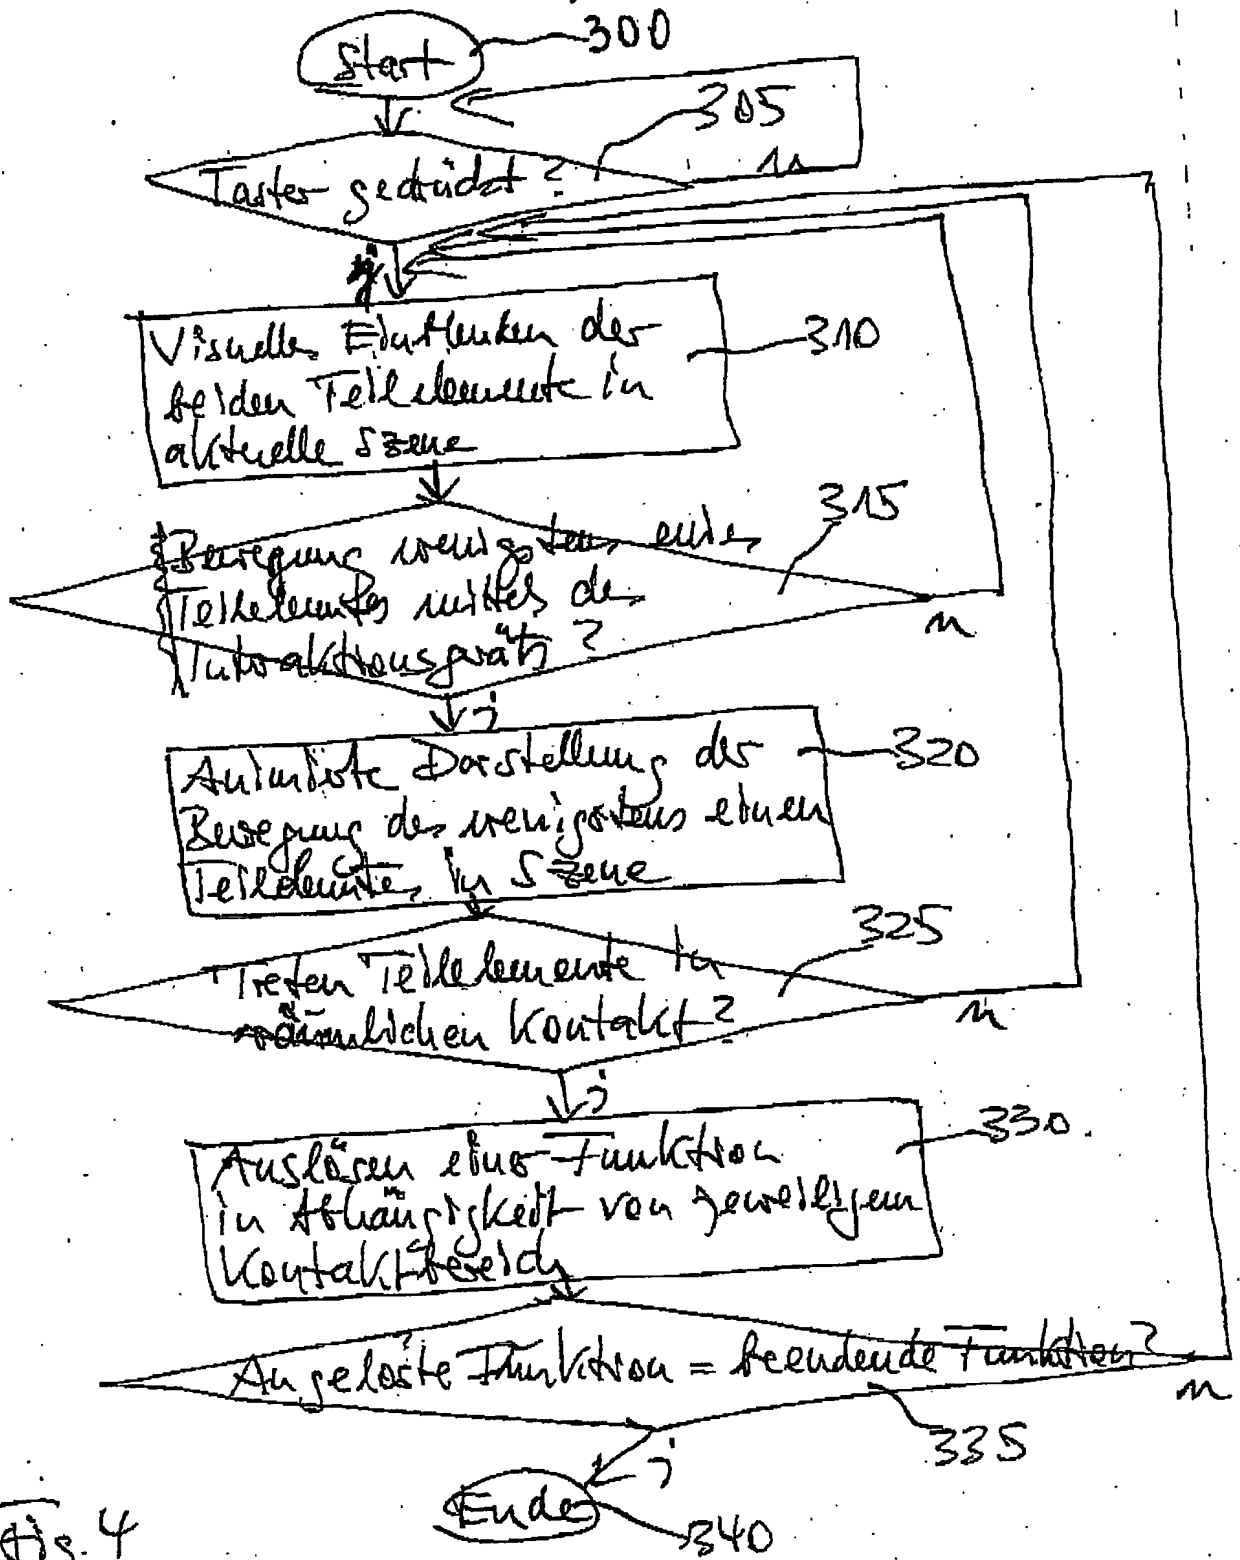 300
Start
305
Taster gedrückt?
n
j
Visuelles Einblenden der
beiden Teilelemente in
aktuelle Szene
310
315
Bewegung wenigstens eines
Teilelementes mittels des
Interaktionsgeräts?
n
j
Animierte Darstellung der
Bewegung des wenigstens einen
Teilelementes in Szene
320
325
Treten Teilelemente in
räumlichen Kontakt?
n
j
Auslösen einer Funktion
in Abhängigkeit von jeweiligem
Kontaktbereich
330
Ausgelöste Funktion = beendende Funktion?
n
335
j
Ende
340
Fig. 4